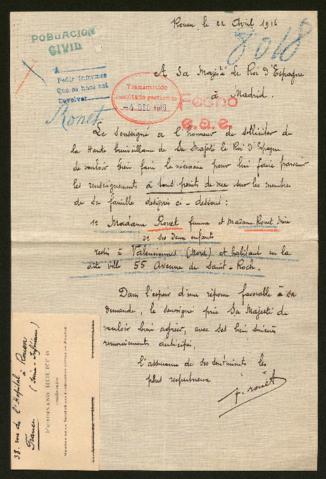 Rouen le 22 Avril 1916
POBLACION
CIVIL
8018
A
Pedir informes
Devolver
Ronet
A Sa Majesté le Roi d'Espagne
à Madrid.
Transmitido
Fecho
e.o.e.
Le soussigné a l'honneur de solliciter de
la Haute bienveillance de Sa Majesté le Roi d'Espagne
de vouloir bien faire le nécessaire pour lui faire parvenir
les renseignements à tout point de vue sur les membres
de sa famille désignés ci-dessous :
1° Madame Ronet femme et Madame Ronet
et ses deux enfants
resté à Valenciennes (Nord) et habitant en la
dite ville 55 Avenue de Saint-Roch.
Dans l'espoir d'une réponse favorable à sa
demande, le soussigné prie Sa Majesté de
vouloir bien agréer, avec ses bien sincères
remerciements anticipés
l'assurance de ses sentiments les
plus respectueux
F. Ronet
38, rue de l'Hopital
à Rouen
(Seine-Inférieure)
France